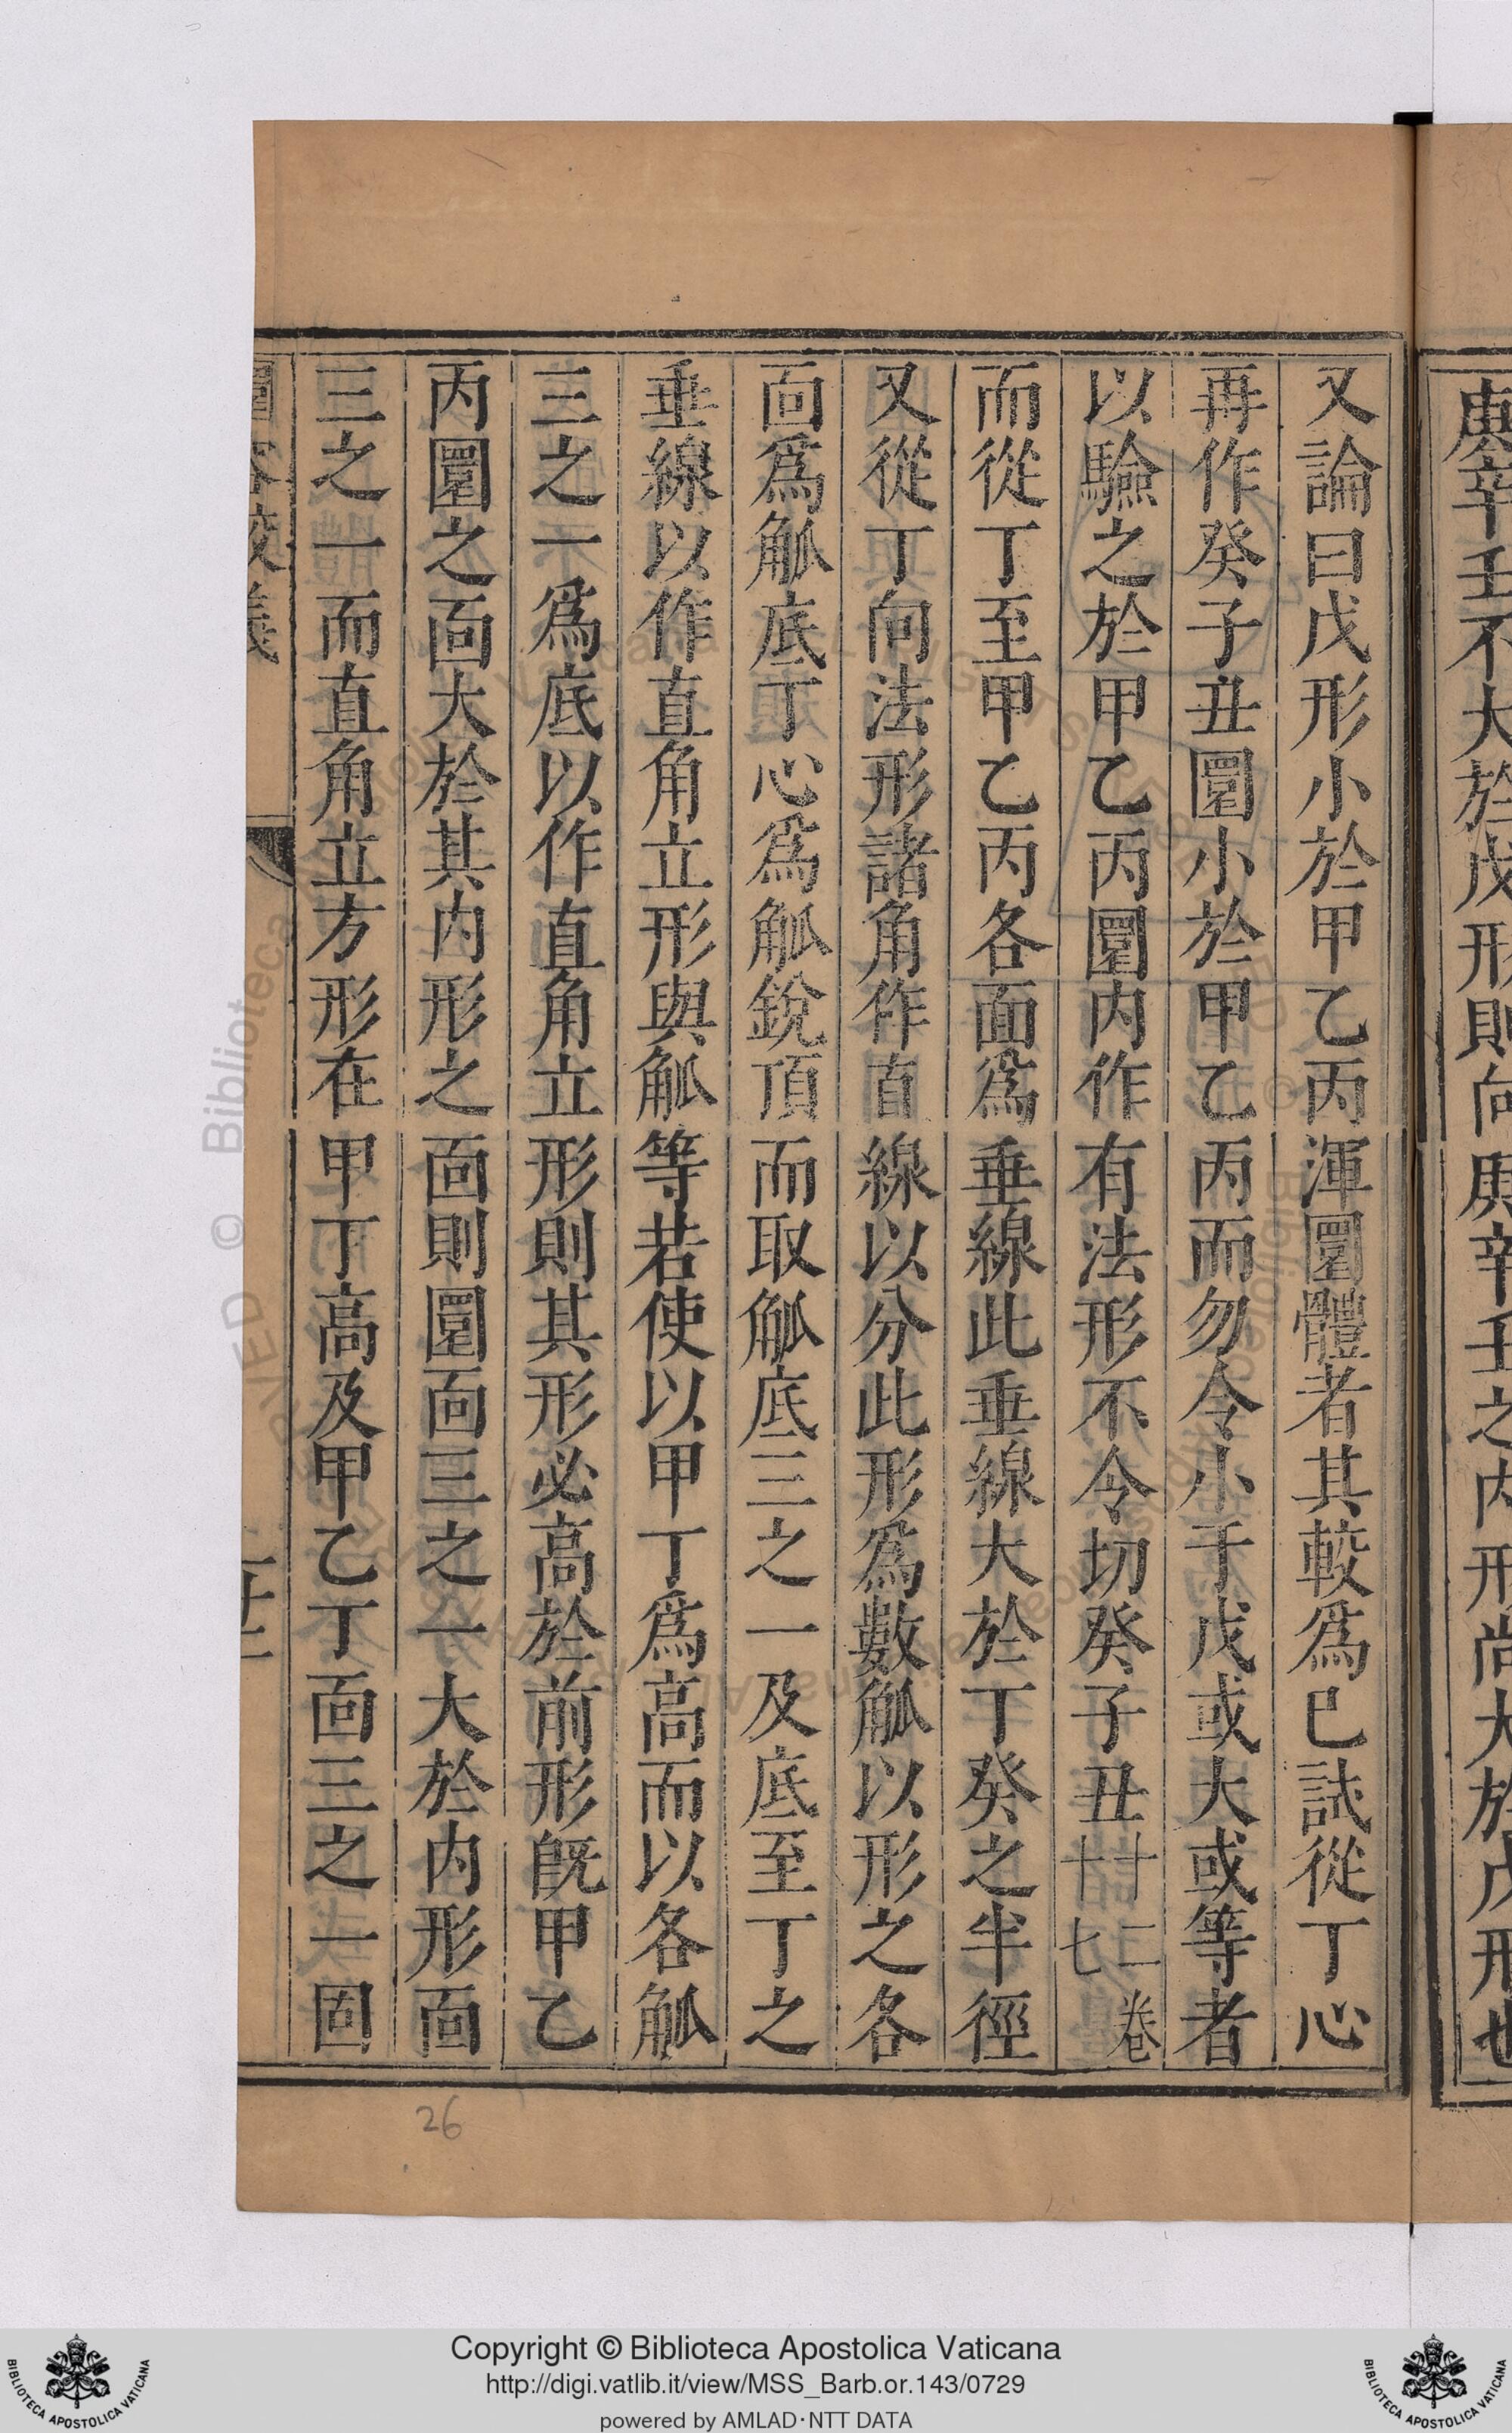 庚辛壬不大於戊形則向庚辛壬之内形尚大於戊形也
又論曰戊形小於甲乙丙渾圜體者其較爲巳試從丁心
再作癸子丑圜小於甲乙丙而勿令小于戊或大或等者
以驗之於甲乙丙圜内作有法形不令切癸子丑十二卷十七
而從丁至甲乙丙各面爲垂線此垂線大於丁癸之半徑
又從丁向法形諸角作直線以分此形爲數觚以形之各
面爲觚底丁心爲觚銳頂而取觚底三之一及底至丁之
垂線以作直角立形與觚等若使以甲丁爲高而以各觚
三之一爲底以作直角立形則其形必高於前形旣甲乙
丙圜之面大於其内形之面則圜面三之一大於内形面
三之一而直角立方形在甲丁高及甲乙丁面三之一固
圜容較義
二十二
26
Copyright © Biblioteca Apostolica Vaticana
http://digi.vatlib.it/view/MSS_Barb.or.143/0729
powered by AMLAD·NTT DATA
BIBLIOTECA APOSTOLICA VATICANA
BIBLIOTECA APOSTOLICA VATICANA